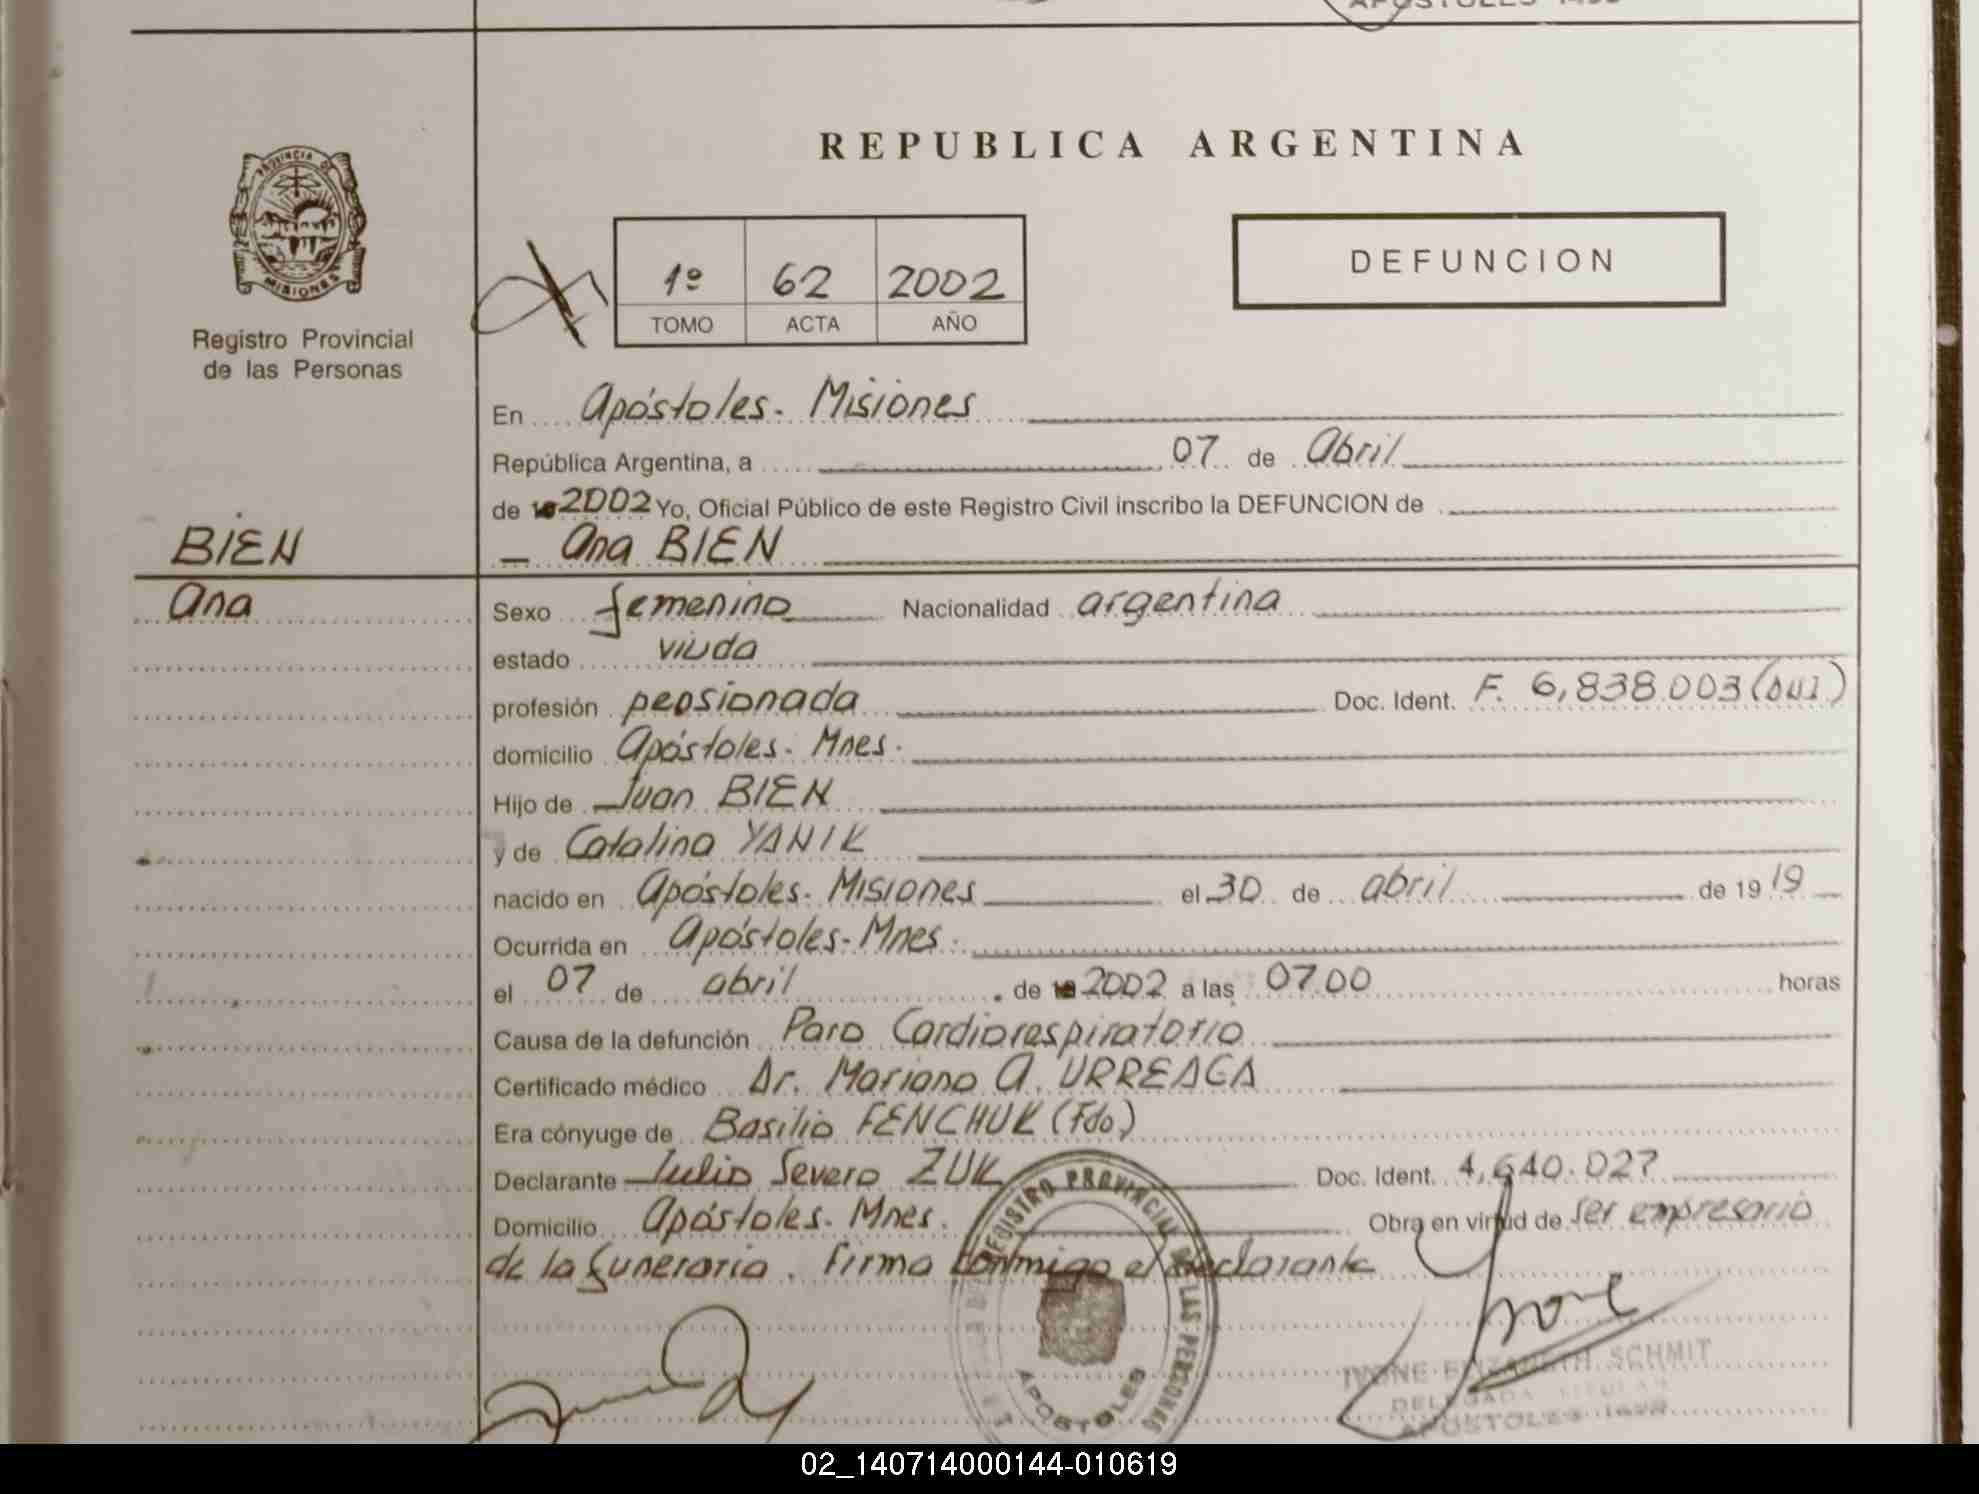 REPUBLICA ARGENTINA
PROVINCIA DE
MISIONES
Registro Provincial
de las Personas
1º 62 2002
TOMO ACTA AÑO
DEFUNCION
En Apóstoles - Misiones
República Argentina, a 07 de Abril
de 2002 Yo, Oficial Público de este Registro Civil inscribo la DEFUNCION de
BIEN
Ana
— Ana BIEN
Sexo femenino Nacionalidad argentina
estado viuda
profesión pensionada Doc. Ident. F. 6,838.003
domicilio Apóstoles - Mnes.
Hijo de Juan BIEN
y de Catalina YANIK
nacido en Apóstoles - Misiones el 30 de abril de 1919
Ocurrida en Apóstoles - Mnes.
el 07 de abril de 2002 a las 07.00 horas
Causa de la defunción Paro Cardiorespiratorio
Certificado médico Dr. Mariano A. URREAGA
Era cónyuge de Basilio FENCHUK (Fdo)
Declarante Julio Severo ZUK Doc. Ident. 4,640.027
Domicilio Apóstoles - Mnes. Obra en virtud de ser empresario
de la funeraria. Firma conmigo el declarante
REGISTRO PROVINCIAL DE LAS PERSONAS
APOSTOLES
IVONE ELIZABETH SCHMIT
DELEGADA TITULAR
APOSTOLES
02_140714000144-010619